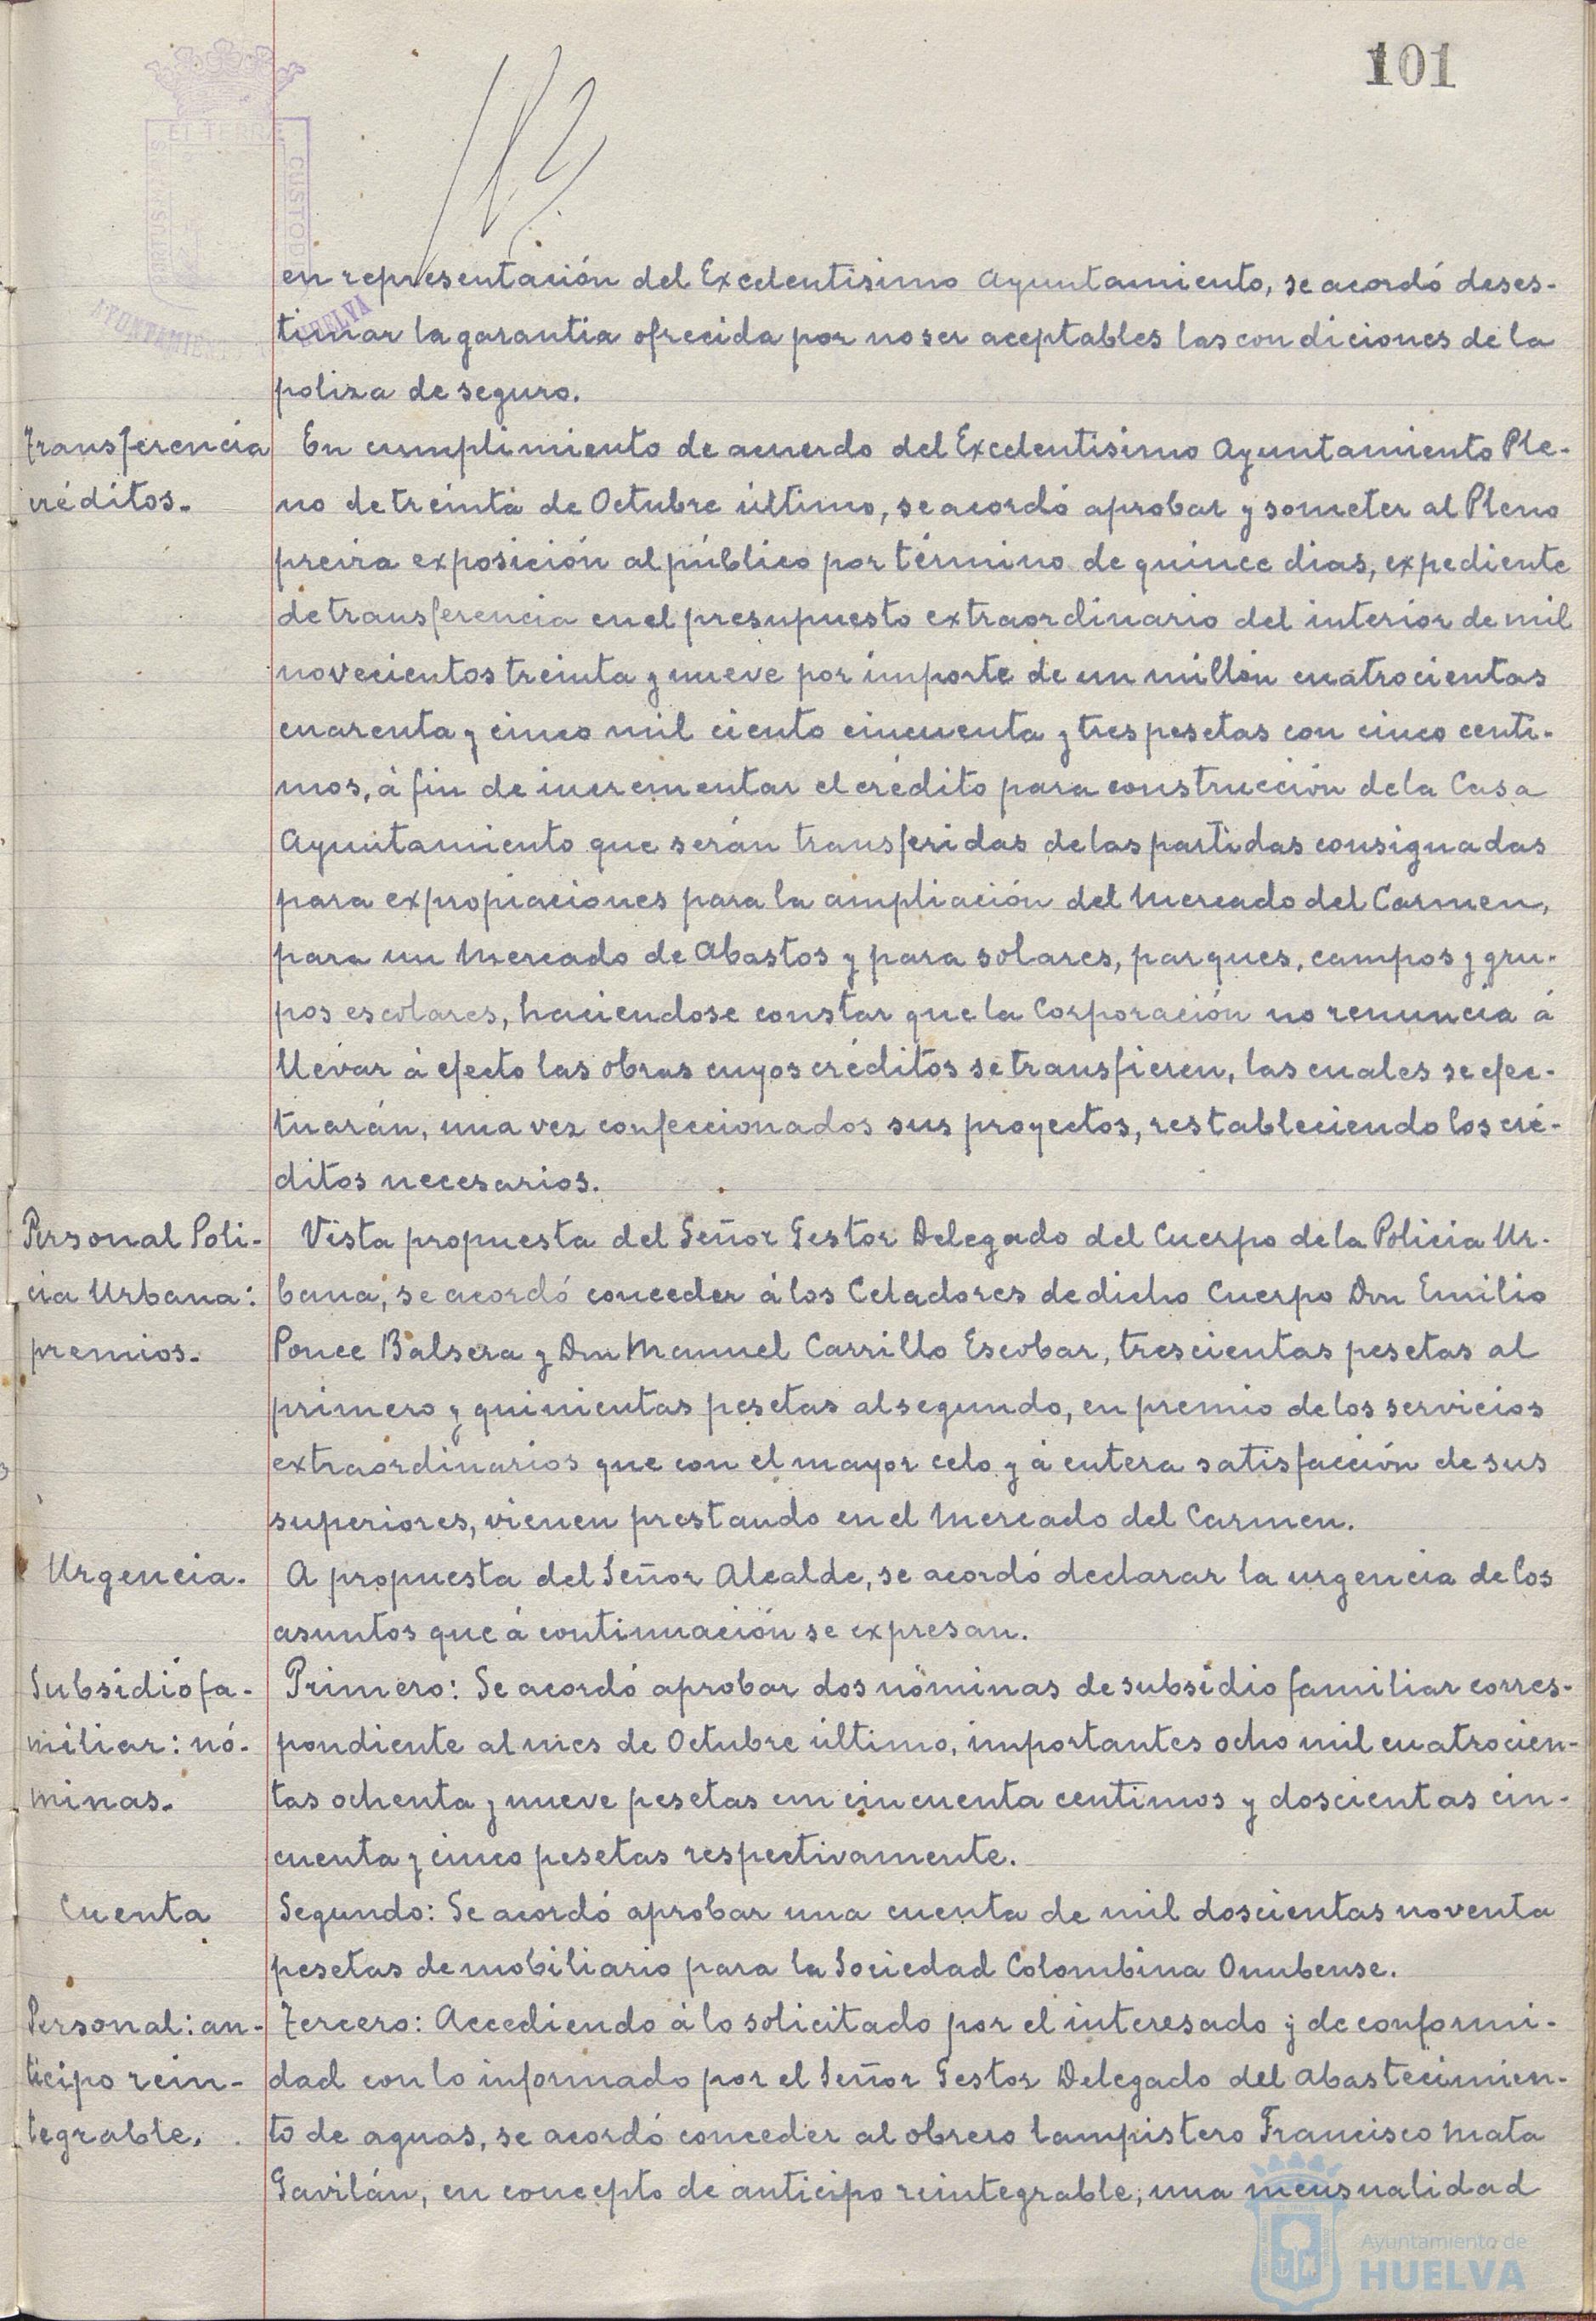 101
ET TERRE
PORTUS MARIS
CUSTODI
AYUNTAMIENTO
HUELVA
en representación del Excelentisimo Ayuntamiento, se acordó deses-
timar la garantia ofrecida por no ser aceptables las condiciones de la
poliza de seguro.
Transferencia
créditos.-
En cumplimiento de acuerdo del Excelentisimo Ayuntamiento Ple-
no de treinta de Octubre último, se acordó aprobar y someter al Pleno
previa exposición al público por término de quince dias, expediente
de transferencia en el presupuesto extraordinario del interior de mil
novecientos treinta y nueve por importe de un millón cuatrocientas
cuarenta y cinco mil ciento cincuenta y tres pesetas con cinco centi-
mos, á fin de incrementar el crédito para construcción de la Casa
Ayuntamiento que serán transferidas de las partidas consignadas
para expropiaciones para la ampliación del Mercado del Carmen,
para un Mercado de Abastos y para solares, parques, campos y gru-
pos escolares, haciendose constar que la Corporación no renuncia á
llevar á efecto las obras cuyos créditos se transfieren, las cuales se efec-
tuarán, una vez confeccionados sus proyectos, restableciendo los cré-
ditos necesarios.
Personal Poli-
cia Urbana:
premios.-
Vista propuesta del Señor Gestor Delegado del Cuerpo de la Policia Ur-
bana, se acordó conceder á los Celadores de dicho Cuerpo Don Emilio
Ponce Balsera y Don Manuel Carrillo Escobar, trescientas pesetas al
primero y quinientas pesetas al segundo, en premio de los servicios
extraordinarios que con el mayor celo y á entera satisfacción de sus
superiores, vienen prestando en el Mercado del Carmen.
Urgencia.-
A propuesta del Señor Alcalde, se acordó declarar la urgencia de los
asuntos que á continuación se expresan.
Subsidio fa-
miliar: nó-
minas.-
Primero: Se acordó aprobar dos nóminas de subsidio familiar corres-
pondiente al mes de Octubre último, importantes ocho mil cuatrocien-
tas ochenta y nueve pesetas con cincuenta centimos y doscientas cin-
cuenta y cinco pesetas respectivamente.
Cuenta
Segundo: Se acordó aprobar una cuenta de mil doscientas noventa
pesetas de mobiliario para la Sociedad Colombina Onubense.
Personal: an-
ticipo rein-
tegrable.
Tercero: Accediendo á lo solicitado por el interesado y de conformi-
dad con lo informado por el Señor Gestor Delegado del abastecimien-
to de aguas, se acordó conceder al obrero lampistero Francisco Mata
Gavilán, en concepto de anticipo reintegrable, una mensualidad
Ayuntamiento de
HUELVA